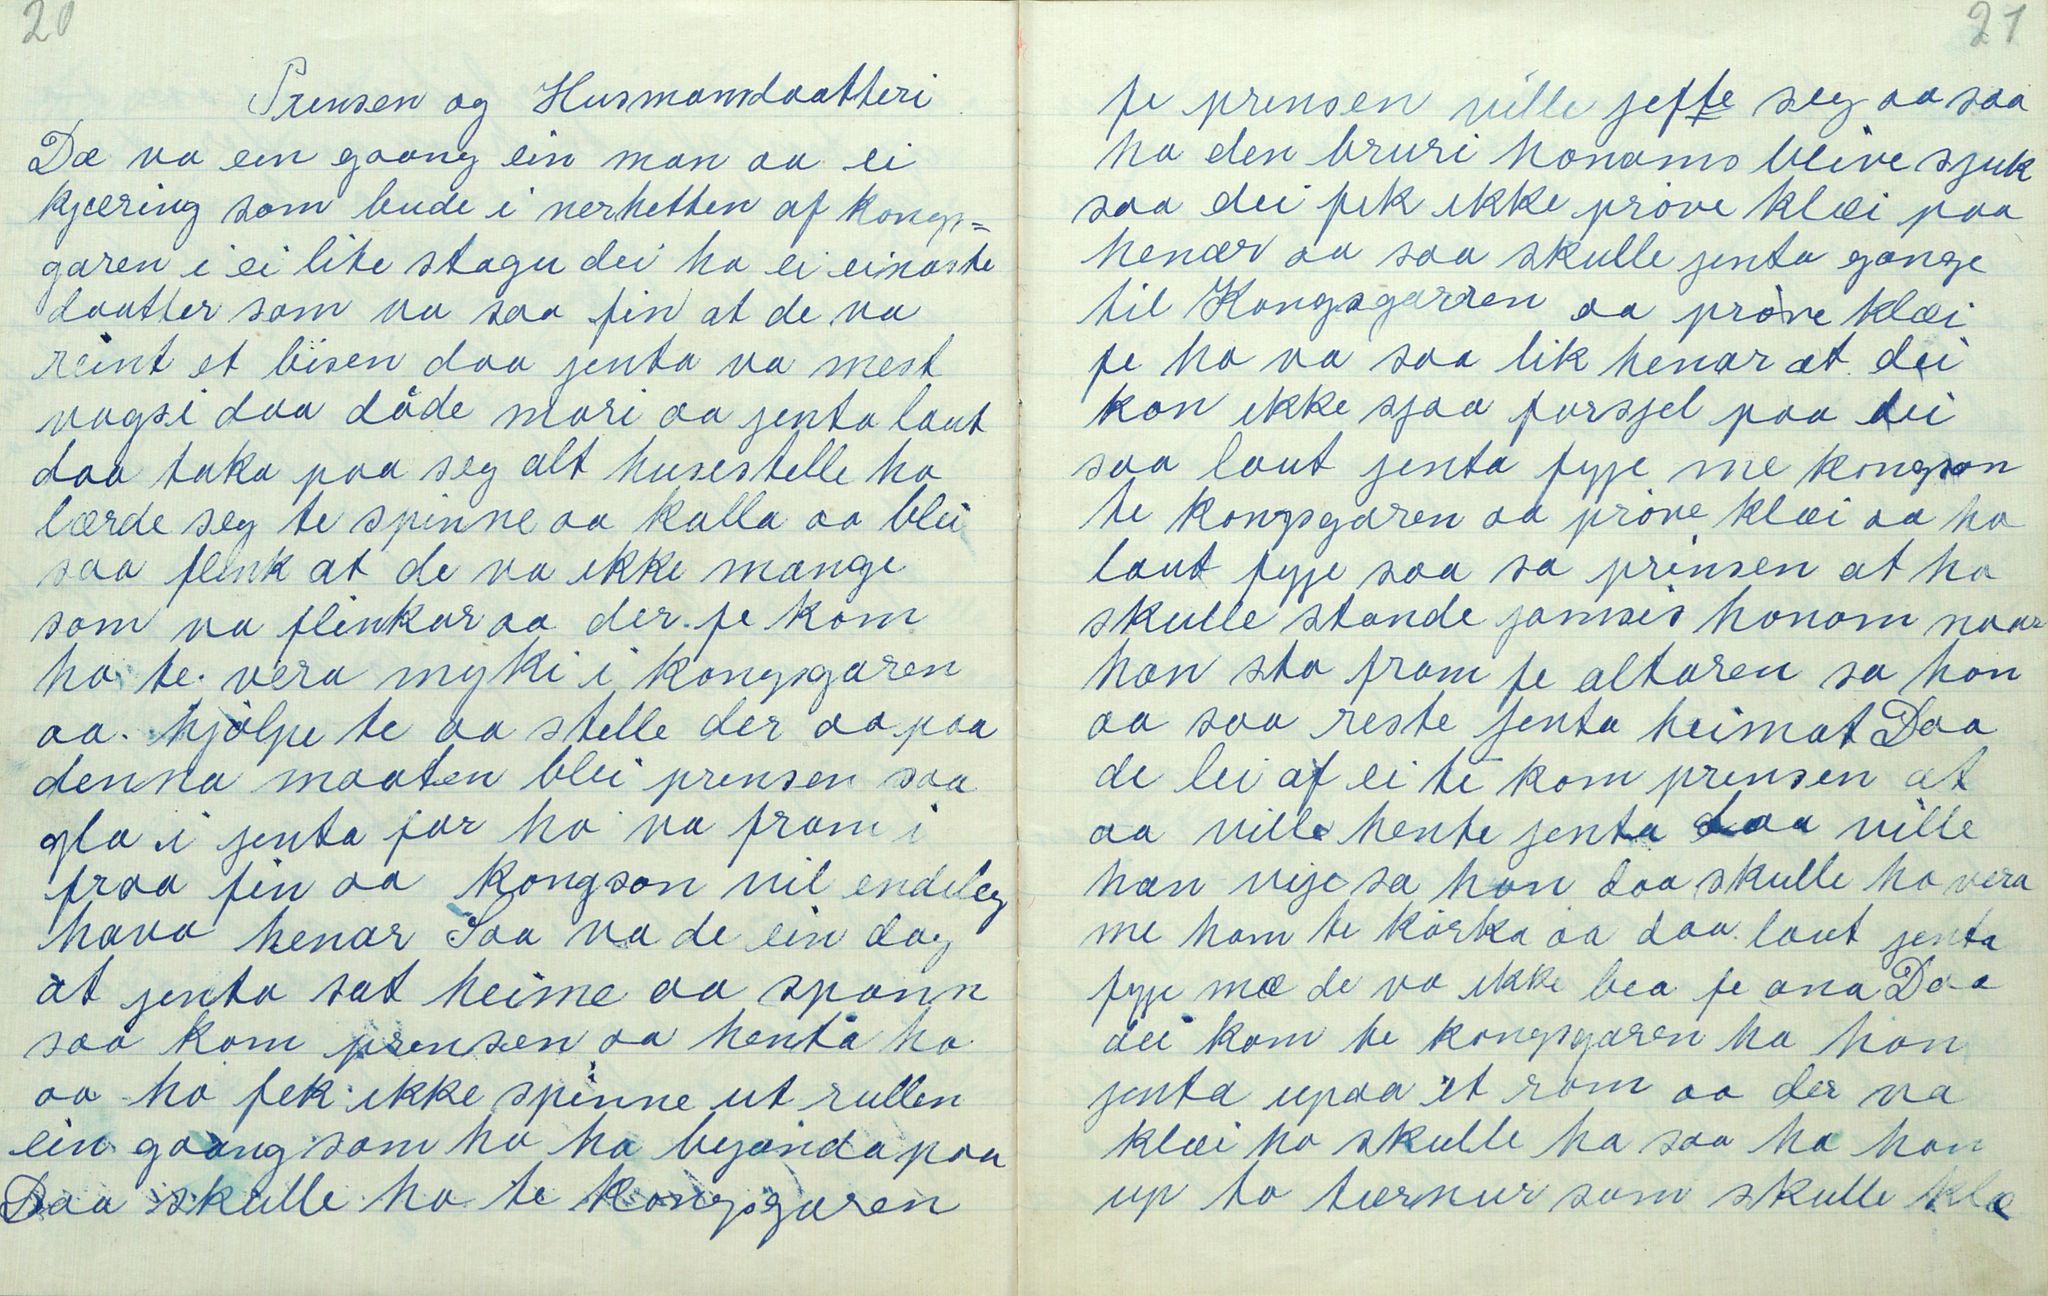 20
Prensen og Husmansdaatteri
Dæ va ein gaang ein man aa ei
kjæring som bude i nerhetten af kongs=
garen i ei lite stagu dei ha ei einaste
daatter som va saa fin at de va
reint et bisen daa jenta va mest
vagsi daa døde mori aa jenta laut
daa taka paa seg alt husestelle ho
lærde seg te spinne aa kalla aa blei
saa flink at de va ikke mange
som va flinkar aa der fe kom
ho te vera myki i kongsgaren
aa hjølpe te aa stelle der aa paa
denna maaten blei prensen saa
gla i jenta for ho va fram i
fraa fin aa kongson vil endeleg
hava henar Saa va de ein dag
at jenta sat heime aa spann
saa kom prensen aa henta ho
aa ho fek ikke spinne ut rullen
ein gaang som ho ha byønda paa
Daa skulle ho te kongsgaren
21
fe prensen ville jefte seg aa saa
ha den bruri honams bleive sjuk
saa dei fek ikke prøve klæi paa
henar aa saa skulle jenta gange
til Kongsgarren aa prøve klæi
fe ho va saa lik henar at dei
kan ikke sjaa forsjel paa dei
saa laut jenta fyje me kongson
te kongsgaren aa prøve klæi aa ho
laut fyje saa sa prinsen at ho
skulle stande jamsis honom naar
han sto fram fe altaren sa han
aa saa reste jenta heimat Daa
de lei af ei ti kom prensen at
aa ville hente jenta daa ville
han vije sa han daa skulle ho vera
me ham te kørka aa daa laut jenta
fyje mæ de va ikke bea fe ana Daa
dei kom te kongsgaren ha han
jenta upaa et rom aa der va
klæi ho skulle ha saa ha han
up to tærnur som skulle klæ